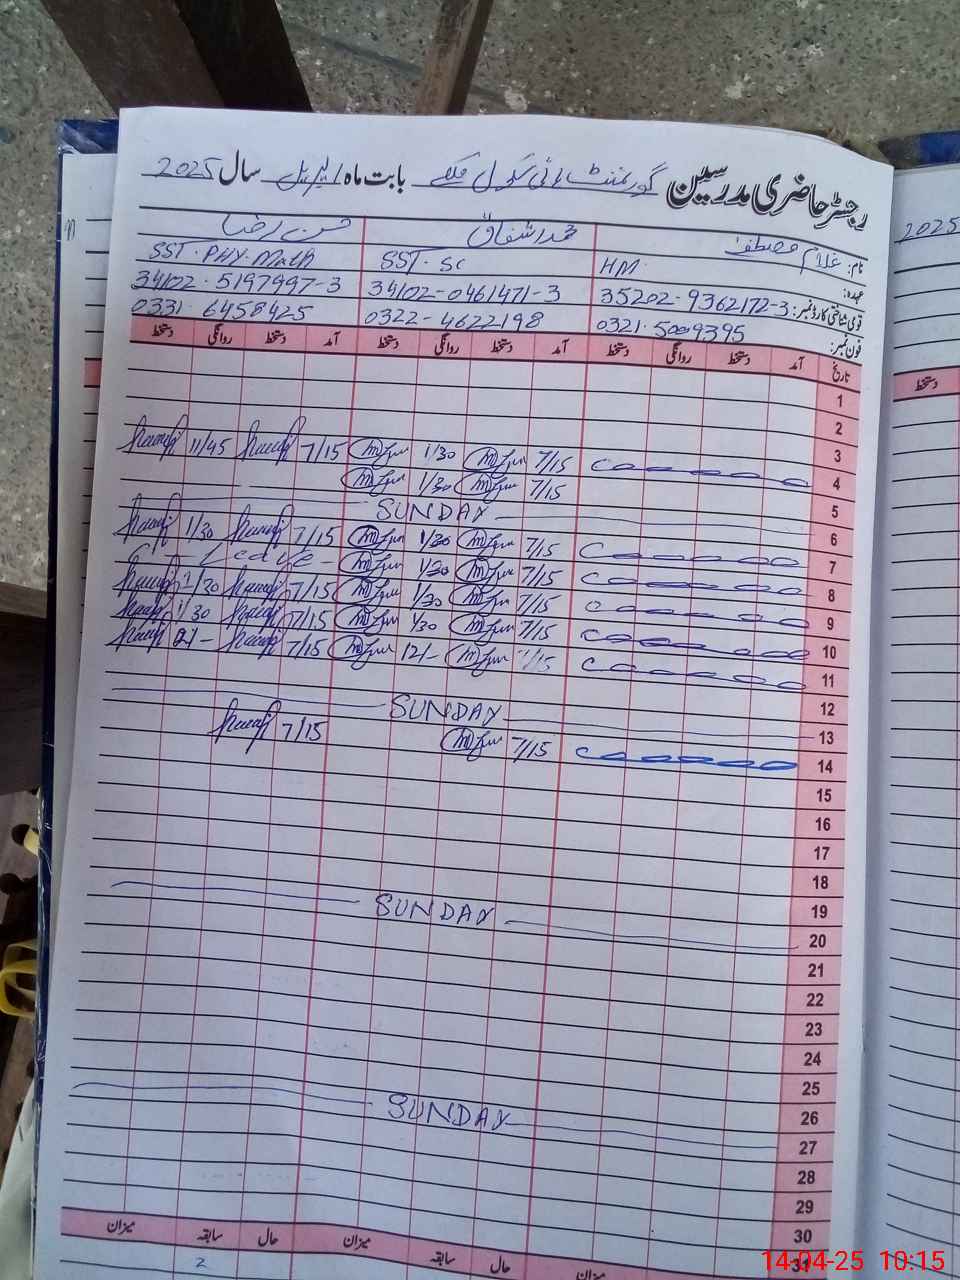 رجسٹر حاضری مدرسین گورنمنٹ ہائی سکول بابت ماہ اپریل سال 2025
2025
نام: غلام مصطفےٰ محمد اشفاق حسن رضا
عہدہ: HM. SST. SC SST. PHY. Math
قومی شناختی کارڈ نمبر: 35202-9362172-3 34102-0461471-3 34102.5197997-3
فون نمبر: 0321.5009395 0322-4622198 0331.6458425
تاریخ آمد دستخط روانگی دستخط آمد دستخط روانگی دستخط آمد دستخط روانگی دستخط
دستخط
1
2
3 7/15 1/30 7/15 11/45
4 7/15 1/30
5
SUNDAY
6 7/15 1/30 7/15 1/30
7 7/15 1/30 Leave
8 7/15 1/30 7/15 1/30
9 7/15 1/30 7/15 1/30
10 7/15 12/- 7/15
11
12
SUNDAY
13
14 7/15 7/15
15
16
17
18
19
SUNDAY
20
21
22
23
24
25
26
SUNDAY
27
28
29
30
31
میزان سابقہ حال میزان سابقہ حال میزان
2
14-04-25 10:15